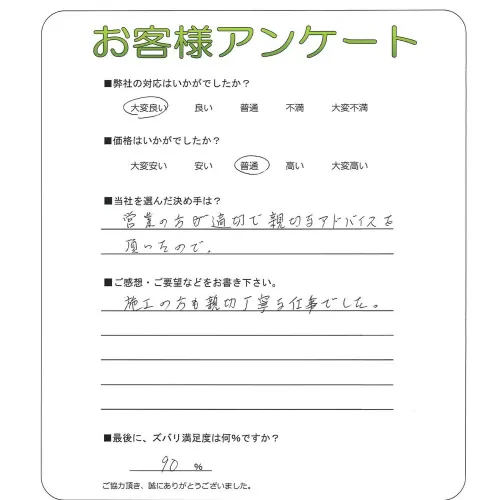 お客様アンケート
■弊社の対応はいかがでしたか？
大変良い 良い 普通 不満 大変不満
■価格はいかがでしたか？
大変安い 安い 普通 高い 大変高い
■当社を選んだ決め手は？
営業の方が適切で親切なアドバイスを
頂いたので。
■ご感想・ご要望などをお書き下さい。
施工の方も親切丁寧な仕事でした。
■最後に、ズバリ満足度は何%ですか？
90 %
ご協力頂き、誠にありがとうございました。